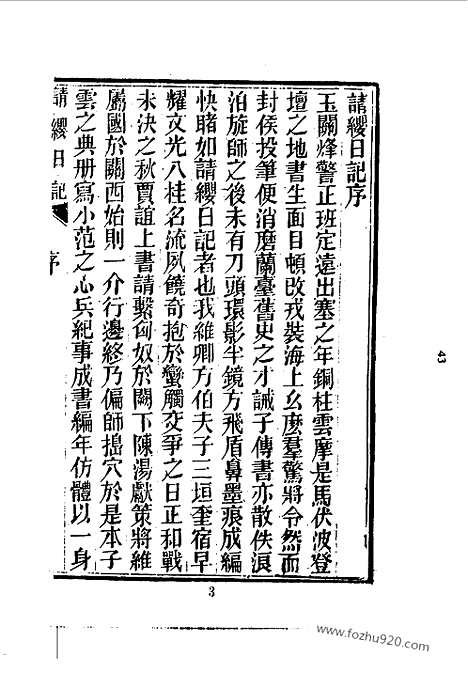 請纓日記序
玉關烽警正班定遠出塞之年銅柱雲摩是馬伏波登
壇之地書生面目頓改戎裝海上么麼羣驚將令然而
封侯投筆便消磨蘭臺舊史之才誡子傳書亦散佚浪
泊旋師之後未有刀頭環影半鏡方飛盾鼻墨痕成編
快睹如請纓日記者也我維卿方伯夫子三垣奎宿早
耀文光八桂名流夙饒奇抱於蠻觸交爭之日正和戰
未決之秋賈誼上書請繫匈奴於闕下陳湯獻策將維
屬國於關西始則一介行邊終乃偏師搗穴於是本子
雲之典册寫小范之心兵紀事成書編年仿體以一身
請纓日記
序
43
3
www.fozhu920.com